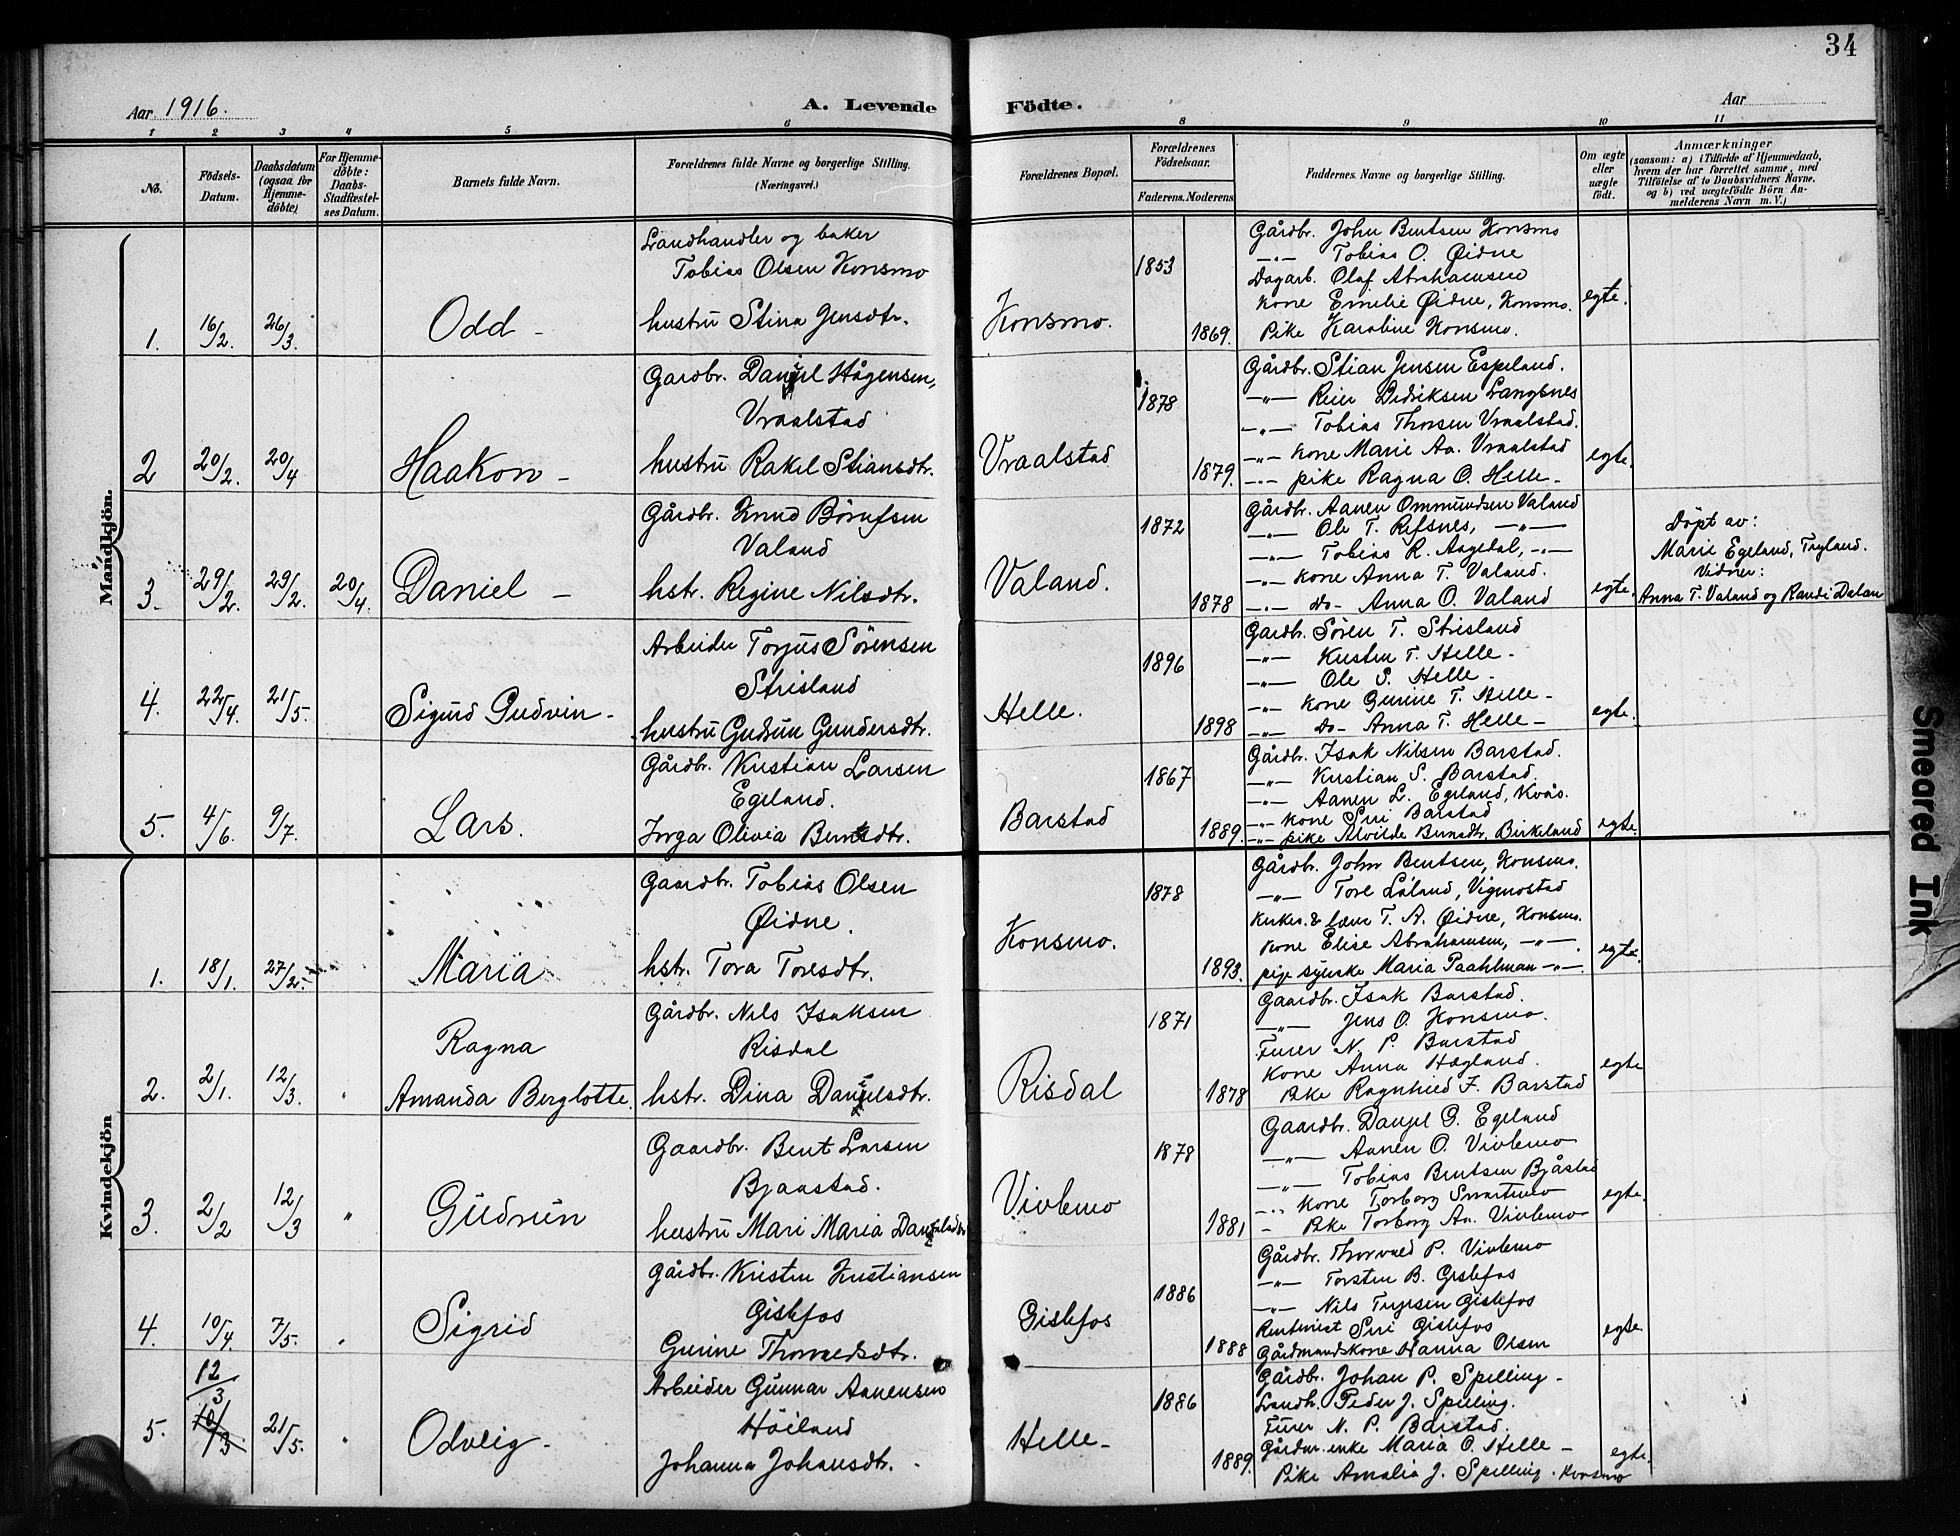 34
Aar 1916.
A. Levende Födte.
Aar
1 2 3 4 5 6 8 9 10 11
No.
Födsels-Datum.
Daabsdatum (ogsaa for Hjemme-döbte)
For Hjemme-döbte: Daabs-Stadfæstel-ses Datum.
Barnets fulde Navn.
Forældrenes fulde Navne og borgerlige Stilling. (Næringsvei.)
Forældrenes Bopæl.
Forældrenes Födselsaar.
Faderens. Moderens
Faddernes Navne og borgerlige Stilling.
Om ægte eller uægte födt.
Anmærkninger
(saasom: a) i Tilfælde af Hjemmedaab,
hvem der har forrettet samme, med
Tilföielse af to Daabsvidners Navne.
og b) ved uægtefödte Börn An-
melderens Navn m. V.)
Mandkjön.
1. 16/2. 26/3. Odd -
Landhandler og baker
Tobias Olsen Konsmo
hustru Stina Jensdtr.
Konsmo.
1853
1869.
Gårdbr. John Bentsen Konsmo
-"- Tobias O. Øidne
Dagarb. Olaf Abrahamsen
Kone Emelie Øidne, Konsmo.
Pike Karoline Konsmo.
egte.
2 20/2. 20/4 Haakon -
Gardbr. Daniel Hågensen,
Vraalstad
hustru Rakel Stiansdtr.
Vraalstad
1878
1879.
Gårdbr. Stian Jensen Espeland.
-"- Reier Didriksen Langenes
-"- Tobias Thorsen Vraalstad.
-"- Kone Marie Aa. Vraalstad
-"- pike Ragna O. Helle -
egte.
3. 29/2. 29/2. 20/4. Daniel -
Gårdbr. Knud Børufsen
Valand
hstr. Regine Nilsdtr.
Valand.
1872
1878
Gårdbr. Aanen Ommundsen Valand
-"- Ole T. Refsnes, -"-
-"- Tobias R. Aagedal, -"-
-"- Kone Anna T. Valand.
-"- Do- Anna O. Valand
egte.
Døpt av:
Marie Egeland, Tryland.
Vidner:
Anna T. Valand og Randi Dalan
4. 22/4. 21/5. Sigurd Gudvin -
Arbeider Torjus Sörensen
Strisland
hustru Gudrun Gundersdtr.
Helle.
1896
1898
Gardbr. Søren T. Strisland
-"- Kristen T. Helle -
-"- Ole S. Helle -
-"- Kone Gurine T. Helle -
-"- Do- Anna T. Helle -
egte.
5. 4/6. 9/7. Lars.
Gårdbr. Kristian Larsen
Egeland.
Inga Olivia Berntsdtr.
Barstad
1867
1889.
Gårdbr. Isak Nilsen Barstad.
-"- Kristian S. Barstad.
-"- Aanen L. Egeland, Kvås.
-"- Kone Siri Barstad
-"- pike Alvilde Berntsdtr. Birkeland
egte.
Kvindekjön
1. 18/1. 27/2. Maria
Gaardbr. Tobias Olsen
Øidne.
hstr. Tora Toresdtr.
Konsmo.
1878
1893.
Gårdbr. John Bentsen, Konsmo.
-"- Tore Låland, Vigmostad
Kirkes. & lærer T. A. Øidne, Konsmo.
Kone Elise Abrahamsen, -"-
pige syerske Maria Paahlman -"-
egte.
2. 2/1. 12/3. " Ragna
Amanda Berglotte.
Gårdbr. Nils Isaksen
Risdal
hstr. Dina Danielsdtr.
Risdal
1871
1878
Gaardbr. Isak Barstad.
-"- Jens O. Konsmo.
Furer N. P. Barstad
Kone Anna Hægland.
Pike Ragnhild I. Barstad
egte
3. 2/2 12/3 " Gudrun
Gaardbr. Bent Larsen
Bjaastad.
hustru Mari Maria Danielsdtr
Vivlemo
1878
1881
Gaardbr. Danjel G. Egeland
-"- Aanen O. Vivlemo
-"- Tobias Bentsen Bjåstad
-"- Kone Torborg Svartemo
- Pike Torborg Aa. Vivlemo
egte.
4. 10/4 7/5. " Sigrid
Gårdbr. Kristen Kristiansen
Gislefos
Gurine Thorvaldsdtr.
Gislefos
1886
1888
Gårdbr. Thorvald P. Vivlemo
-"- Torsten B. Gislefos
-"- Nils Terjesen Gislefos
Rentenist Siri Gislefos
Gårdmandskone Hanna Olsen
egte.
5. 12/3 10/3 21/5. " Odveig -
Arbeider Gunnar Aanensen
Höiland
Johanna Johansdtr. -
Helle -
1886
1889.
Gårdbr. Johan P. Spilling -
Landh. Peder J. Spilling.
Furer N. P. Barstad.
Gårdm. enke Maria O. Helle -
Pike Amalia J. Spilling. Konsmo
egte.
Smeared Ink